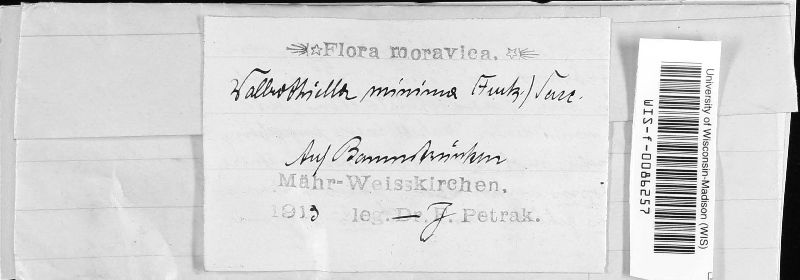 Flora moravica.
Wallrothiella minima (Fuck.) Sacc.
Auf Baumstrünken
Mähr-Weisskirchen.
1913 leg. Dr. F. Petrak.
University of Wisconsin-Madison (WIS)
WIS-f-0086257